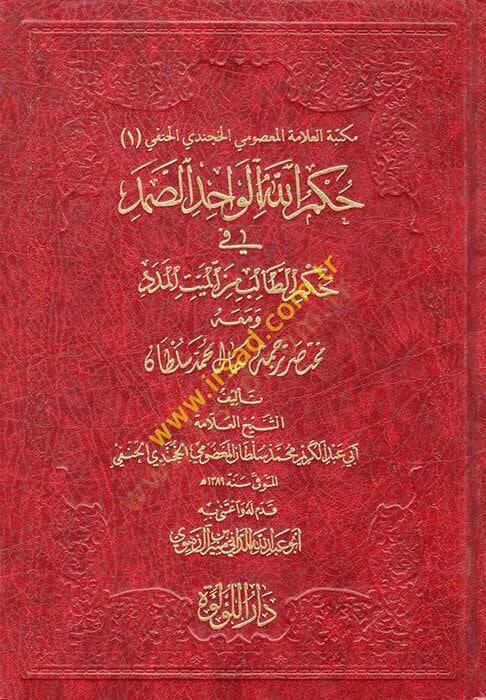 مكتبة العلامة المعصومي الخجندي الحنفي (١)
حكم الله الواحد الصمد
في
حكم الطالب من الميت المدد
ومعه
مختصر ترجمة حال محمد سلطان
تأليف
الشيخ العلامة
أبي عبد الكريم محمد سلطان المعصومي الخجندي الحنفي
المتوفى سنة ١٣٨١هـ
قدم له واعتنى به
أبو عبد الله المداني منير
دار اللؤلؤة
www.irsad.com.tr